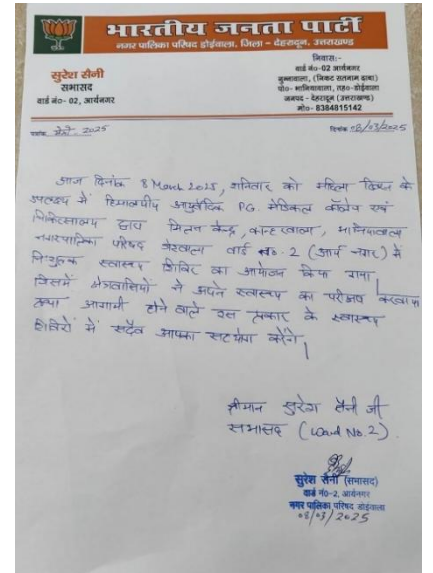 भारतीय जनता पार्टी
नगर पालिका परिषद डोईवाला, जिला - देहरादून, उत्तराखण्ड
सुरेश सैनी
सभासद
वार्ड नं०- 02, आर्यनगर
निवासः-
वार्ड नं०-02 आर्यनगर
(निकट सतनाम ढाबा)
पो०- भानियावाला, तह०-डोईवाला
जनपद - देहरादून (उत्तराखण्ड)
मो०- 8384815142
पत्रांक 2025
दिनांक 08/03/2025
आज दिनांक 8 March 2025, शनिवार को महिला दिवस के
उपलक्ष्य में हिमालयीय आयुर्वेदिक P.G. मेडिकल कॉलेज एवं
चिकित्सालय द्वारा मिलन केन्द्र, कान्हरवाला, भानियावाला
नगरपालिका परिषद डोईवाला वार्ड No. 2 (आर्य नगर) में
निःशुल्क स्वास्थ्य शिविर का आयोजन किया गया।
जिसमें क्षेत्रवासियों ने अपने स्वास्थ्य का परीक्षण करवाया
तथा आगामी होने वाले इस प्रकार के स्वास्थ्य
शिविरों में सदैव आपका सहयोग करेंगे।
श्रीमान सुरेश सैनी जी
सभासद (Ward No. 2)
सुरेश सैनी (सभासद)
वार्ड नं०-2, आर्यनगर
नगर पालिका परिषद डोईवाला
08/03/2025